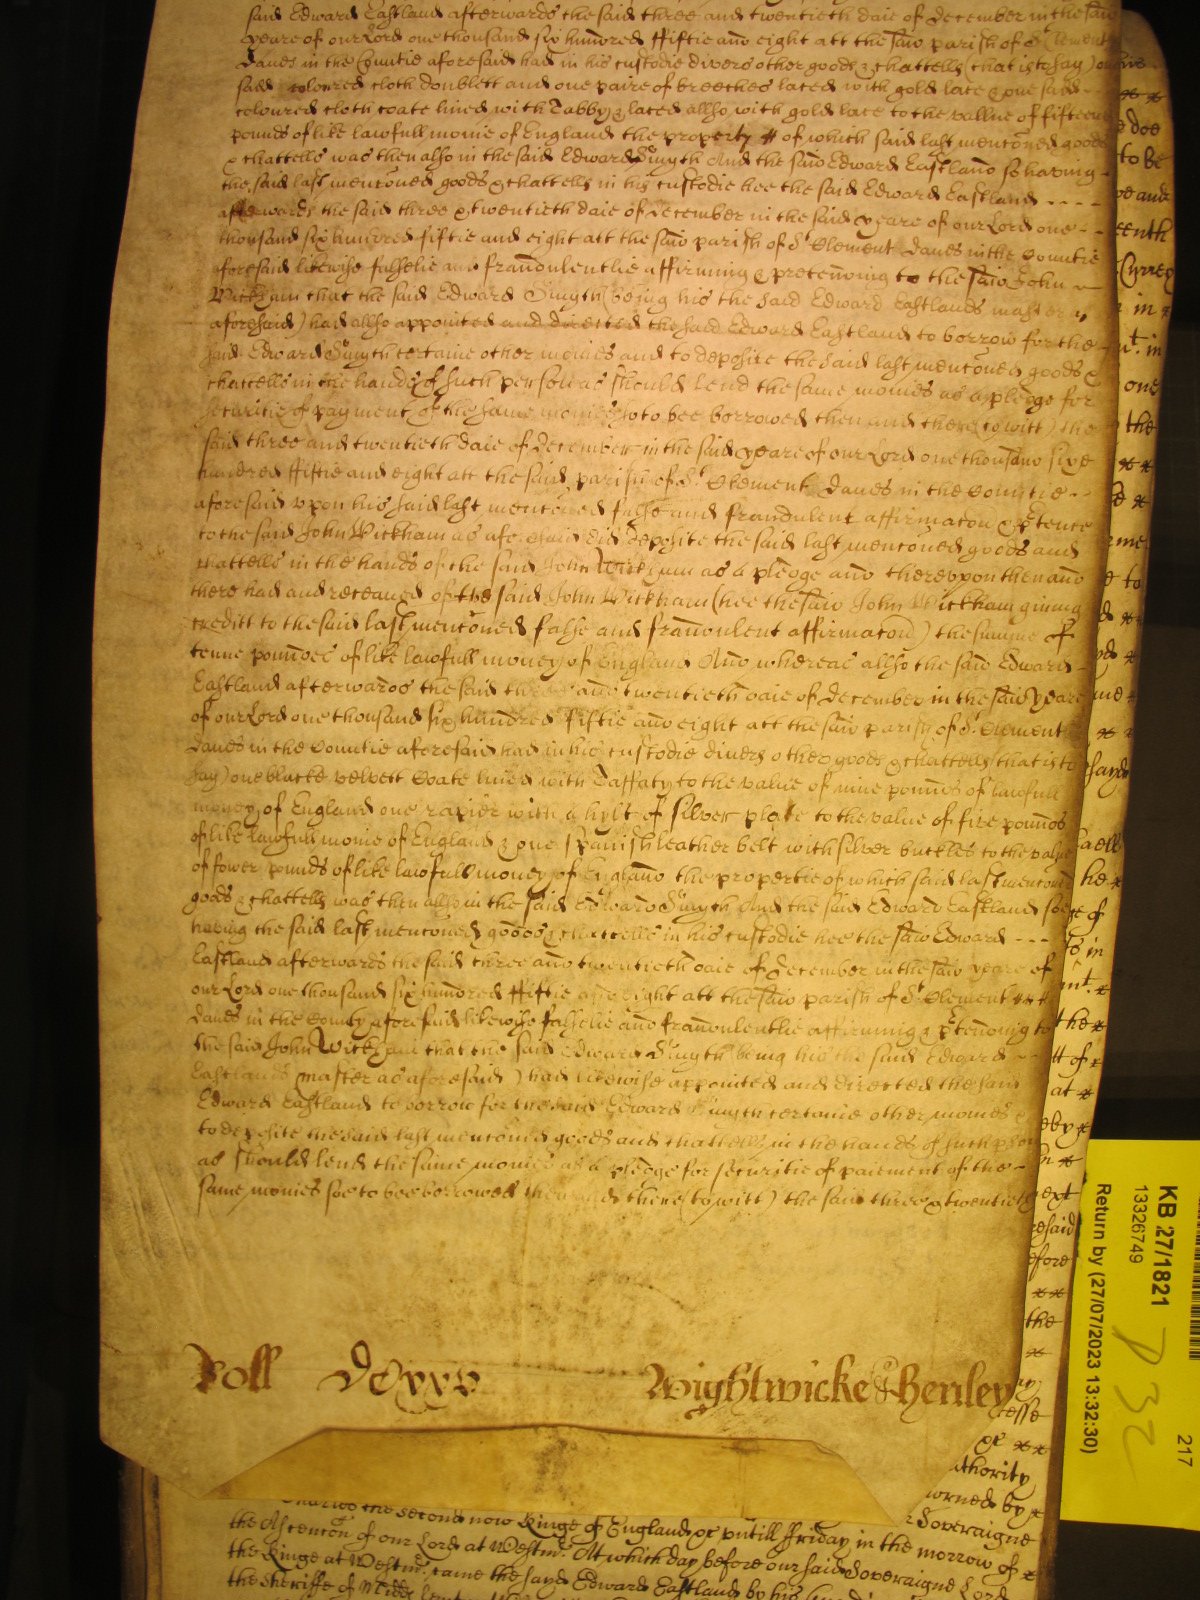 said Edward Eastland afterwards the said three and twentieth daie of December in the said
yeare of our Lord one thousand six hundred ffiftie and eight att the said parish of St Clement
Danes in the Countie aforesaid had in his custodie divers other goods & chattells (that is to say) one
sadd coloured cloth doublett and one paire of breeches laced with gold lace & one sadd
coloured cloth coate lined with Tabby & laced allso with gold lace to the vallue of fifteene
pounds of like lawfull monie of England the property of which said last menconed goods
& chattells was then also in the said Edward Smyth And the said Edward Eastland so having
the said last menconed goods & chattells in his custodie hee the said Edward Eastland
afterwards the said three & twentieth daie of December in the said yeare of our Lord one
thousand six hundred fiftie and eight att the said parish of St Clement Danes in the Countie
aforesaid likewise falselie and fraudulentlie affirming & pretending to the said John
Wickham that the said Edward Smyth (being his the said Edward Eastlands master
aforesaid) had allso appointed and directed the said Edward Eastland to borrow for the
said Edward Smyth certaine other monies and to deposite the said last menconed goods &
chattells in the hands of such persons as should lend the same monies as a pledge for
securitie of payment of the same monies so to bee borrowed then and there (to witt) the
said three and twentieth daie of December in the said yeare of our Lord one thousand sixe
hundred ffiftie and eight att the said parish of St Clement Danes in the Countie
aforesaid vpon his said last menconed false and fraudulent affirmacon & ptence
to the said John Wickham as aforesaid did deposite the said last menconed goods and
chattells in the hands of the said John Wickham as a pledge and therevpon then and
there had and receaued of the said John Wickham (hee the said John Wickham giuing
creditt to the said last menconed false and fraudulent affirmacon) the summe of
tenne poundes of like lawfull money of England And whereas allso the said Edward
Eastland afterwards the said three and twentieth daie of December in the said yeare
of our Lord one thousand six hundred fiftie and eight att the said parish of St Clement
Danes in the Countie aforesaid had in his custodie diuers other goods & chattells (that is to
say) one blacke velvett Coate lined with Taffaty to the value of nine pounds of lawfull
money of England one rapier with a hylt of silver plate to the value of five pounds
of like lawfull monie of England & one Spanish leather belt with silver buckles to the value
of fower pounds of like lawfull money of England the propertie of which said last menconed
goods & chattells was then allso in the said Edward Smyth And the said Edward Eastland soe
having the said last menconed goods & chattells in his custodie hee the said Edward
Eastland afterwards the said three and twentieth daie of December in the said yeare of
our Lord one thousand six hundred ffiftie and eight att the said parish of St Clement
Danes in the County aforesaid likewise falselie and fraudulentlie affirming & ptending to
the said John Wickham that the said Edward Smyth being his the said Edward
Eastlands (master as aforesaid) had likewise appointed and directed the said
Edward Eastland to borrow for the said Edward Smyth certaine other monies &
to deposite the said last menconed goods and chattells in the hands of such pson
as should lend the same monies as a pledge for securitie of paiement of the
same monies soe to bee borrowed then and there (to witt) the said three & twentieth
Roll DCxxv Wightwicke & Henley
Charles the second now Kinge of England &c vntill ffriday in the morrow of
the Ascencon of our Lord at Westmr. At which day before our said Soveraigne Lord
the Kinge at Westmr. came the sayd Edward Eastland by his
the Sheriffe of Midds
doe
to be
one
the
sayd
he
ge of
in
the
tt of
at
eby
ext
said
efore
the
esse
uthority
orned by
Soveraigne
KB 27/1821
13326749
Return by (27/07/2023 13:32:30)
217
D32